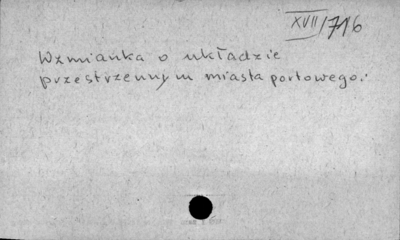 XVII/716
Wzmianka o układzie
przestrzennym miasta portowego.